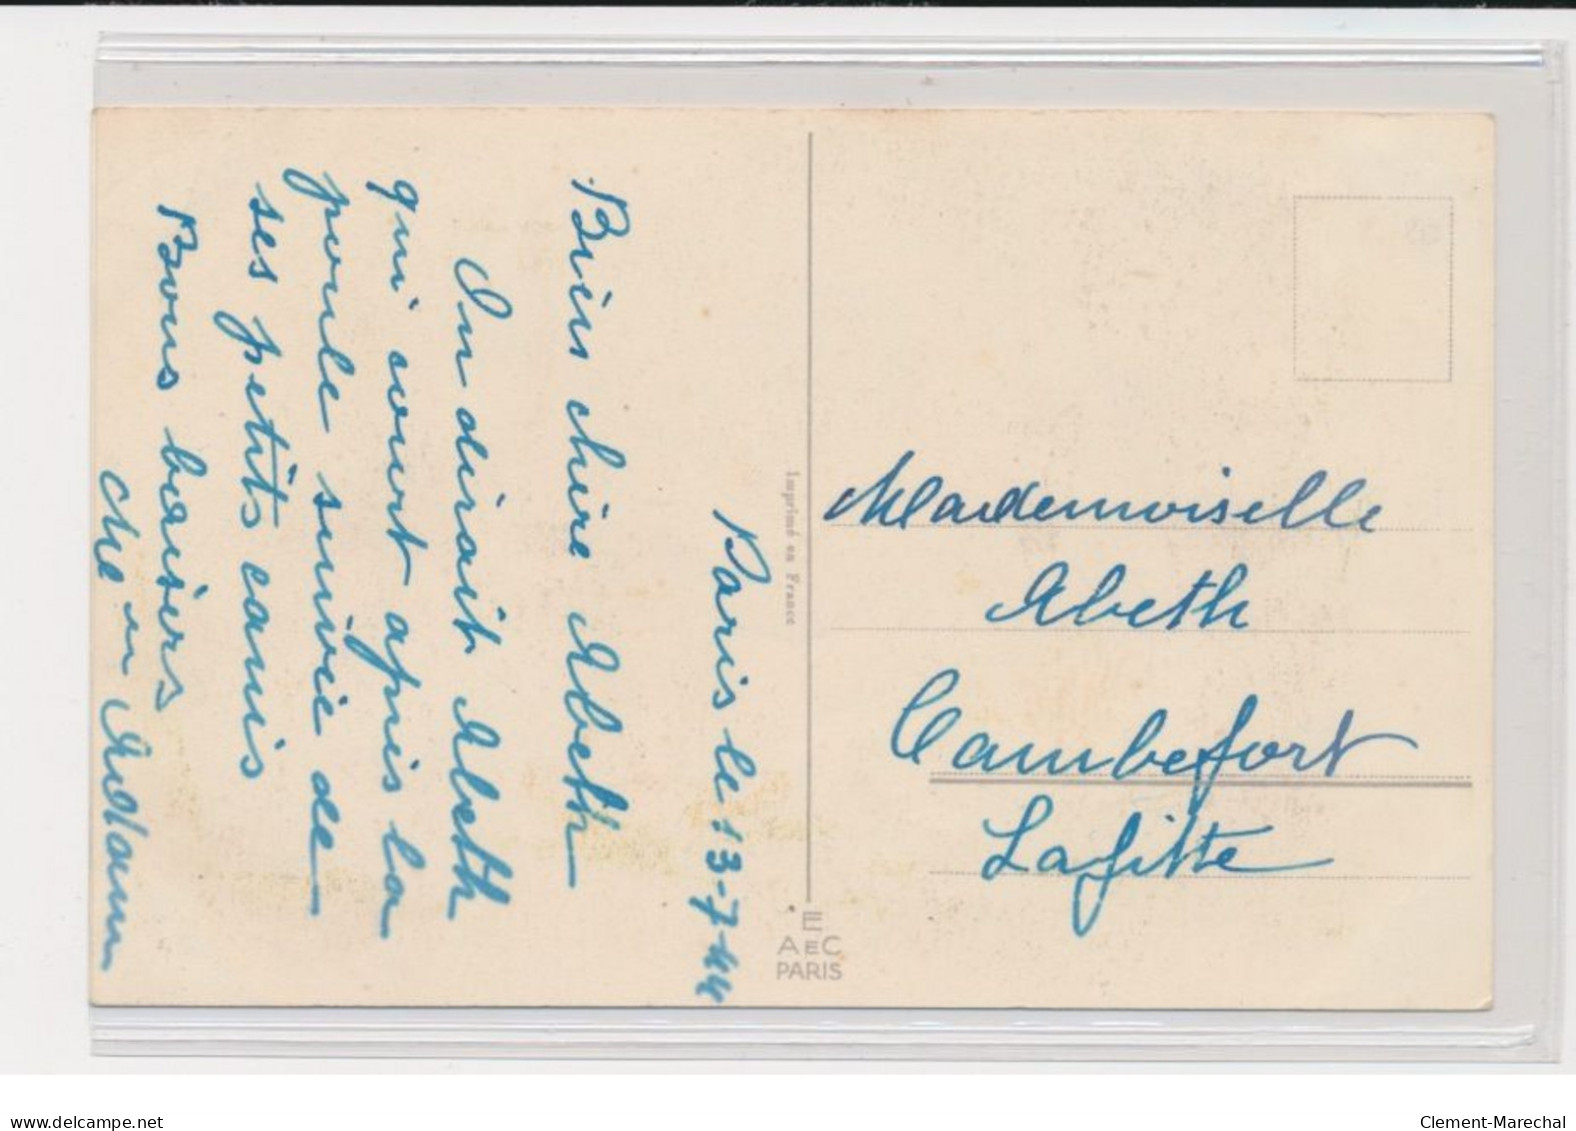 Paris le 13-7-44
Bien chère Abeth
On dirait Abeth
qui court après la
poule suivie de
ses petits canis
Bons baisers
Imprimé en France
E
AEC
PARIS
Mademoiselle
Abeth
Cambefort
Lafitte
www.delcampe.net
Clement-Marechal